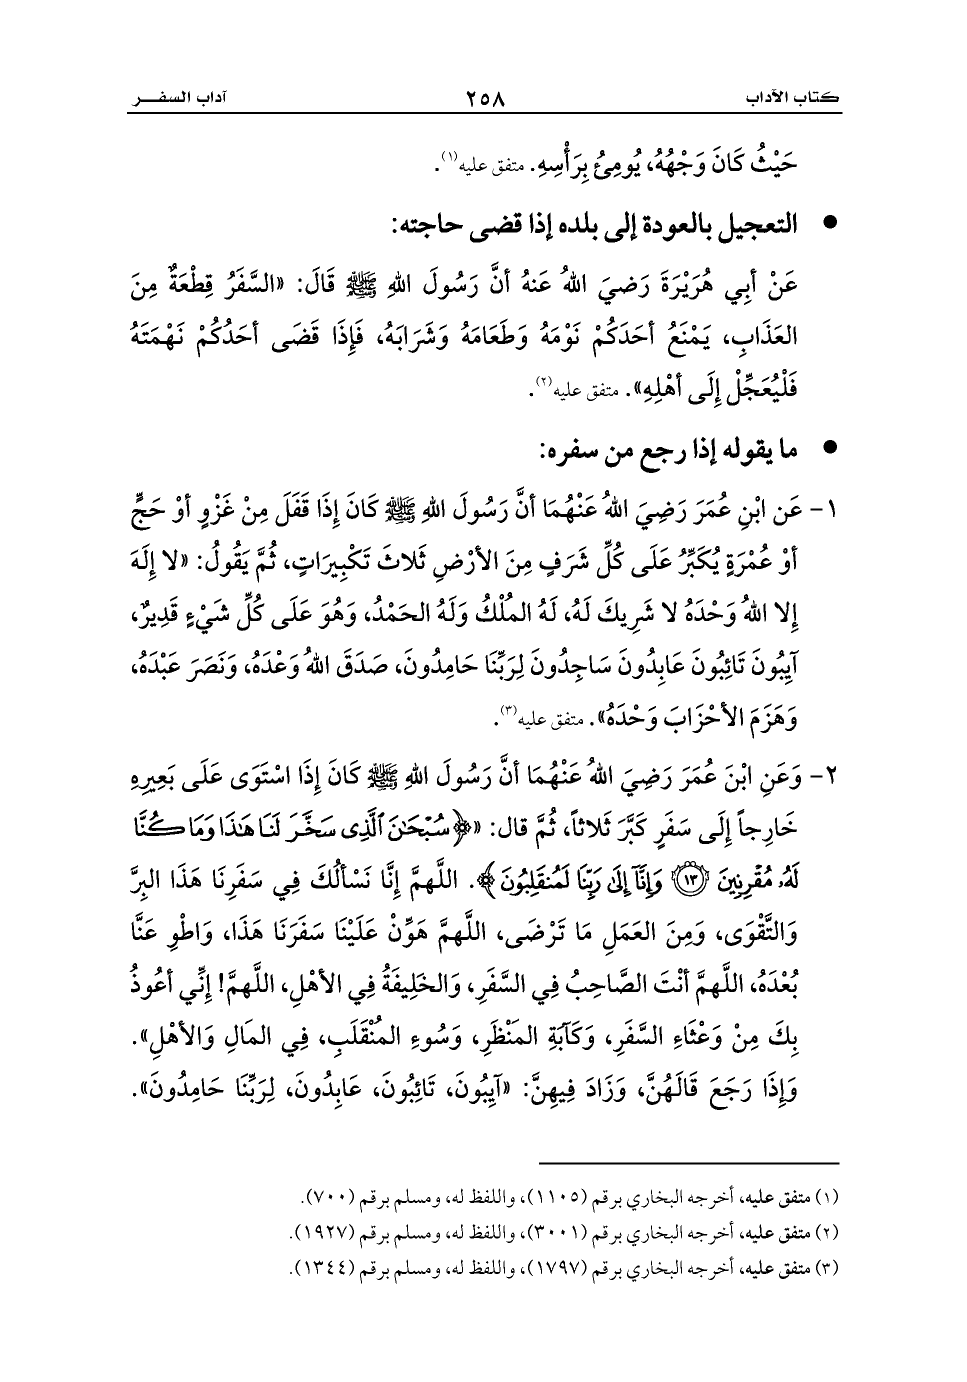 كتاب الآداب ٢٥٨ آداب السفـــر
حَيْثُ كَانَ وَجْهُهُ، يُومِئُ بِرَأْسِهِ. متفق عليه(١).
● التعجيل بالعودة إلى بلده إذا قضى حاجته:
عَنْ أبِي هُرَيْرَةَ رَضِيَ اللهُ عَنهُ أنَّ رَسُولَ اللهِ ﷺ قَالَ: «السَّفَرُ قِطْعَةٌ مِنَ
العَذَابِ، يَمْنَعُ أحَدَكُمْ نَوْمَهُ وَطَعَامَهُ وَشَرَابَهُ، فَإِذَا قَضَى أحَدُكُمْ نَهْمَتَهُ
فَلْيُعَجِّلْ إلَى أهْلِهِ». متفق عليه(٢).
● ما يقوله إذا رجع من سفره:
١- عَن ابْنِ عُمَرَ رَضِيَ اللهُ عَنْهُمَا أنَّ رَسُولَ اللهِ ﷺ كَانَ إذَا قَفَلَ مِنْ غَزْوٍ أوْ حَجٍّ
أوْ عُمْرَةٍ يُكَبِّرُ عَلَى كُلِّ شَرَفٍ مِنَ الأرْضِ ثَلاثَ تَكْبِيرَاتٍ، ثُمَّ يَقُولُ: «لا إلَهَ
إلا اللهُ وَحْدَهُ لا شَرِيكَ لَهُ، لَهُ المُلْكُ وَلَهُ الحَمْدُ، وَهُوَ عَلَى كُلِّ شَيْءٍ قَدِيرٌ،
آيِبُونَ تَائِبُونَ عَابِدُونَ سَاجِدُونَ لِرَبِّنَا حَامِدُونَ، صَدَقَ اللهُ وَعْدَهُ، وَنَصَرَ عَبْدَهُ،
وَهَزَمَ الأحْزَابَ وَحْدَهُ». متفق عليه(٣).
٢- وَعَنِ ابْنَ عُمَرَ رَضِيَ اللهُ عَنْهُمَا أنَّ رَسُولَ اللهِ ﷺ كَانَ إذَا اسْتَوَى عَلَى بَعِيرِهِ
خَارِجاً إلَى سَفَرٍ كَبَّرَ ثَلاثاً، ثُمَّ قال: «﴿سُبْحَٰنَ ٱلَّذِى سَخَّرَ لَنَا هَٰذَا وَمَا كُنَّا
لَهُۥ مُقْرِنِينَ ١٣ وَإِنَّآ إِلَىٰ رَبِّنَا لَمُنقَلِبُونَ﴾. اللَّهمَّ إنَّا نَسْألُكَ فِي سَفَرِنَا هَذَا البِرَّ
وَالتَّقْوَى، وَمِنَ العَمَلِ مَا تَرْضَى، اللَّهمَّ هَوِّنْ عَلَيْنَا سَفَرَنَا هَذَا، وَاطْوِ عَنَّا
بُعْدَهُ، اللَّهمَّ أنْتَ الصَّاحِبُ فِي السَّفَرِ، وَالخَلِيفَةُ فِي الأهْلِ، اللَّهمَّ! إنِّي أعُوذُ
بِكَ مِنْ وَعْثَاءِ السَّفَرِ، وَكَآبَةِ المَنْظَرِ، وَسُوءِ المُنْقَلَبِ، فِي المَالِ وَالأهْلِ».
وَإِذَا رَجَعَ قَالَهُنَّ، وَزَادَ فِيهِنَّ: «آيِبُونَ، تَائِبُونَ، عَابِدُونَ، لِرَبِّنَا حَامِدُونَ».
(١) متفق عليه، أخرجه البخاري برقم (١١٠٥)، واللفظ له، ومسلم برقم (٧٠٠).
(٢) متفق عليه، أخرجه البخاري برقم (٣٠٠١)، واللفظ له، ومسلم برقم (١٩٢٧).
(٣) متفق عليه، أخرجه البخاري برقم (١٧٩٧)، واللفظ له، ومسلم برقم (١٣٤٤).